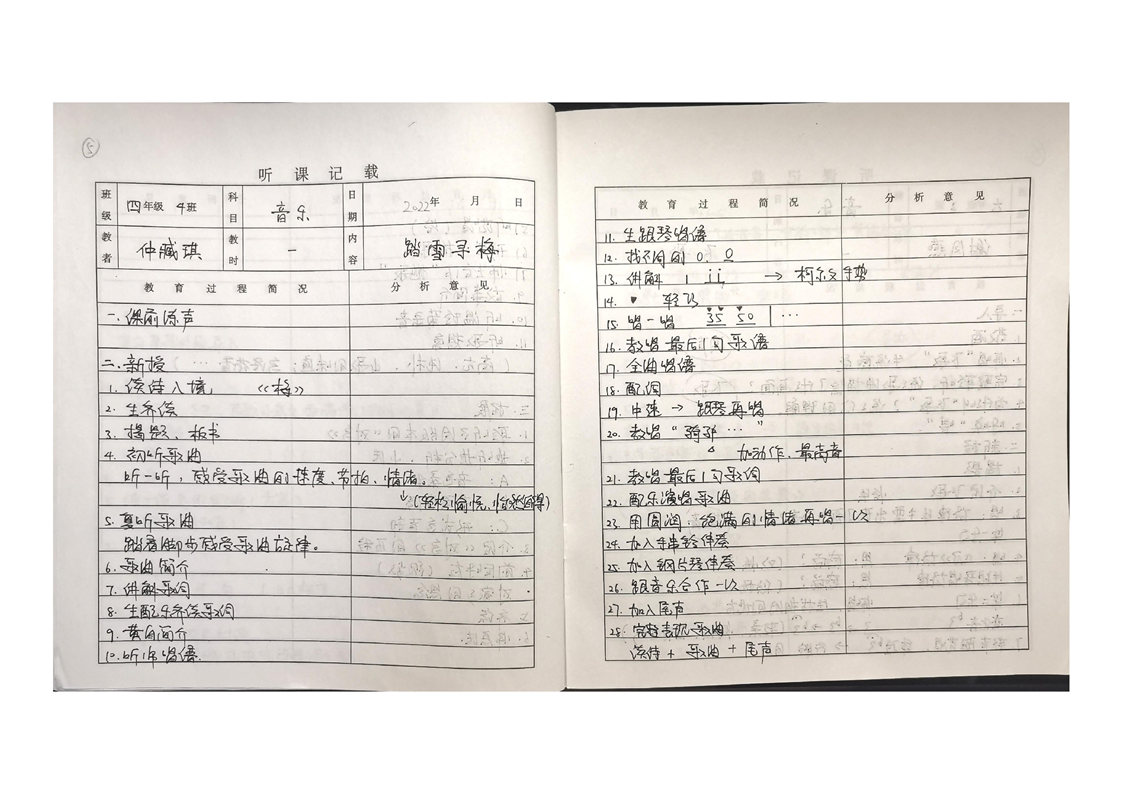 ②
听课记载
班级 四年级 4班 科目 音乐 日期 2022年 月 日
教者 仲臧琪 教时 一 内容 踏雪寻梅
教育过程简况 分析意见
一、课前练声
二、新授
1. 读诗入境 《梅》
2. 生齐读
3. 揭题、板书
4. 初听歌曲
听一听，感受歌曲的速度、节拍、情绪。
↓(轻松愉悦、怡然自得)
5. 复听歌曲
踏着脚步感受歌曲旋律。
6. 歌曲简介
7. 讲解歌词
8. 生配乐齐读歌词
9. 黄自简介
10. 听师唱谱
教育过程简况 分析意见
11. 生跟琴唱谱
12. 找不同的 0 0
13. 讲解 1 i i → 柯尔文手势
14. ▼ 轻巧
15. 唱一唱 35 50 | …
16. 教唱最后1句歌谱
17. 全曲唱谱
18. 配词
19. 中速 → 跟琴再唱
20. 教唱“骑驴…”
加动作、最高音
21. 教唱最后1句歌词
22. 配乐演唱歌曲
23. 用圆润、饱满的情绪再唱一次
24. 加入手串铃伴奏
25. 加入钢片琴伴奏
26. 跟音乐合作一次
27. 加入尾声
28. 完整表现歌曲
读诗 + 歌曲 + 尾声